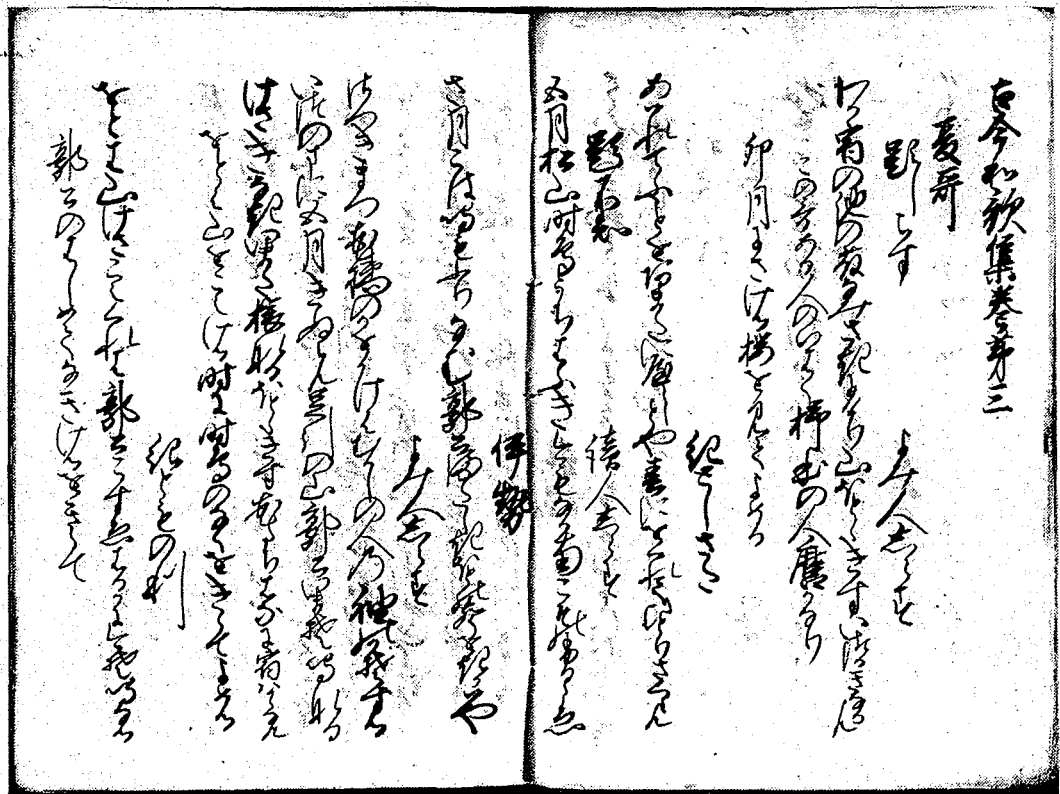 古今和歌集巻第三
夏哥
題しらす
よみ人しらす
わか宿の池の藤なみさきにけり山ほとゝきすいつかきなかん
このうたある人のいはく柿本の人麿かなり
卯月にさける桜を見てよめる
紀としさた
あはれてふことをあまたにやらしとや春にをくれてひとりさくらん
題しらす
読人しらす
五月松山時鳥うちはふき今もなかなんこその古こゑ
伊勢
さ月こはなきもふりなむ郭公またしきほとのこゑをきかはや
よみ人しらす
さつきまつ花橘のかをかけはむかしの人の袖のかそする
いつのまに五月きぬらん足引の山郭公今そ鳴なる
けさきなきまた旅なるほとゝきす花たち花に宿はからなん
をとは山をこえける時に時鳥のなくをきゝてよめる
紀とものり
をとは山けさこえくれは郭公こすゑはるかに今そ鳴なる
郭公のはしめてなきけるをきゝて